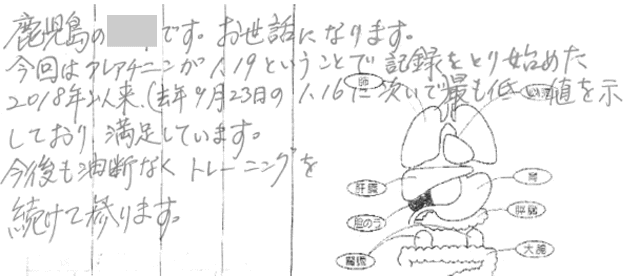 鹿児島の
です。お世話になります。
今回はクレアチニンが1.19ということで記録をとり始めた
2018年以来、(去年9月23日の1.16に次いで最も低い値を示
しており 満足しています。
今後も油断なくトレーニングを
続けて参ります。
肺
肝臓
胃
胆のう
脾臓
腎臓
大腸